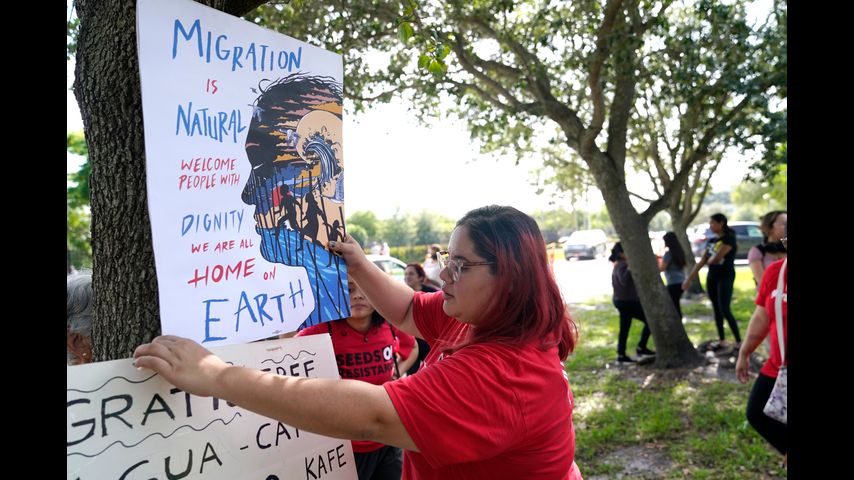 MIGRATION
IS
NATURAL
WELCOME
PEOPLE WITH
DIGNITY
WE ARE ALL
HOME ON
EARTH
GRATIS
FREE
AGUA - CAF
KAFE
SEEDS OF
RESISTANCE